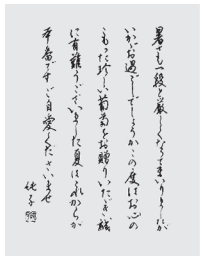 暑さも一段と厳しくなってまいりましたが
いかがお過ごしでしょうか この度はお心の
こもった珍しい葡萄をお贈りいただき誠
に有難うございました 夏はこれからが
本番です ご自愛くださいませ